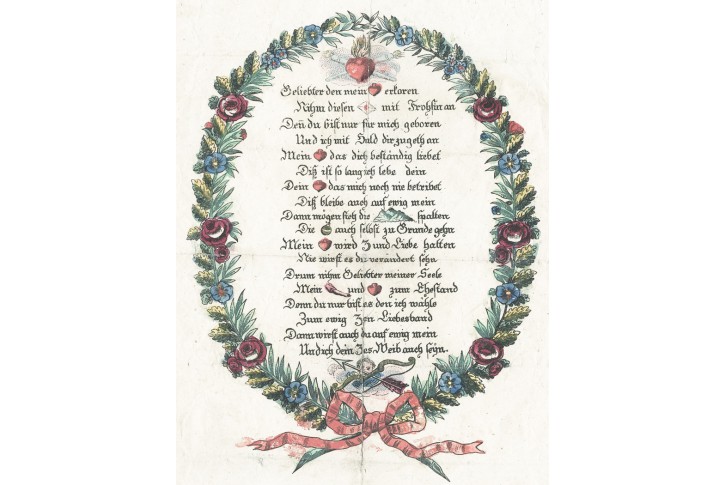 Geliebter den mein erkoren
Nihm diesen mit Frohsin an
Den̄ du bist nur für mich geboren
Und ich mit Bald dir zugethan
Mein das dich beständig liebet
Diß ist so lang ich lebe dein
Dein das mich noch nie betribet
Diß bleibe auch auf ewig mein
Dann mögen sich die spalten
Die auch selbst zu Grunde gehn
Mein wird 3 und Liebe halten
Nie wirst es du verändert sehn
Drum nihm Geliebter meiner Seele
Mein und zum Ehestand
Denn du nur bist es den ich wähle
Zum ewig 3en Liebesband
Dann wirst auch du auf ewig mein
Und ich dein 3es Weib auch seÿn.